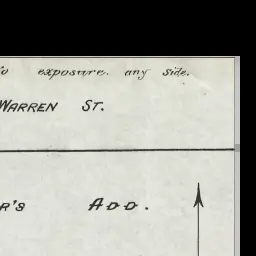 exposure any side.
WARREN ST.
R'S ADD.